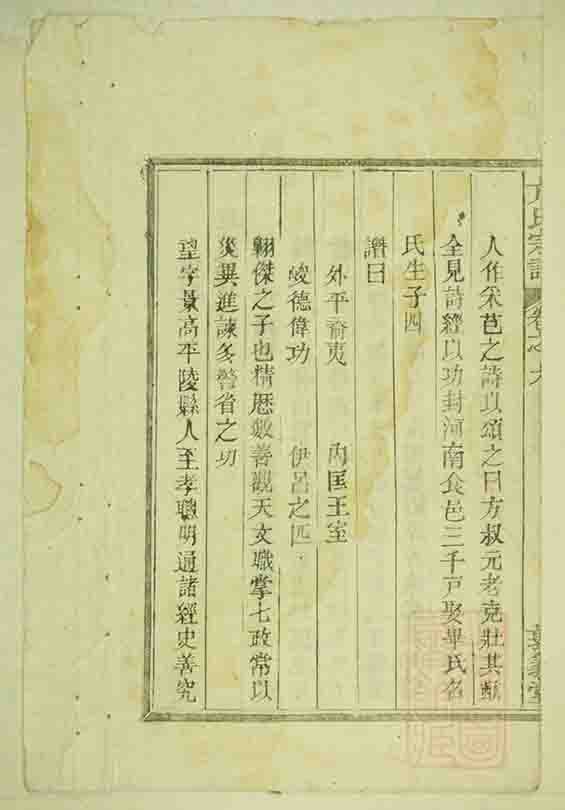 方氏宗譜 卷之九 敦義堂
人作采芑之詩以頌之曰方叔元老克壯其猷
全見詩經以功封河南食邑三千戸娶畢氏名
氏生子四
譜曰
外平裔夷 內匡王室
峻德偉功 伊呂之匹
翺傑之子也精厯數善觀天文職掌七政常以
災異進諫多警省之功
望字景高平陵縣人至孝聰明通諸經史善究